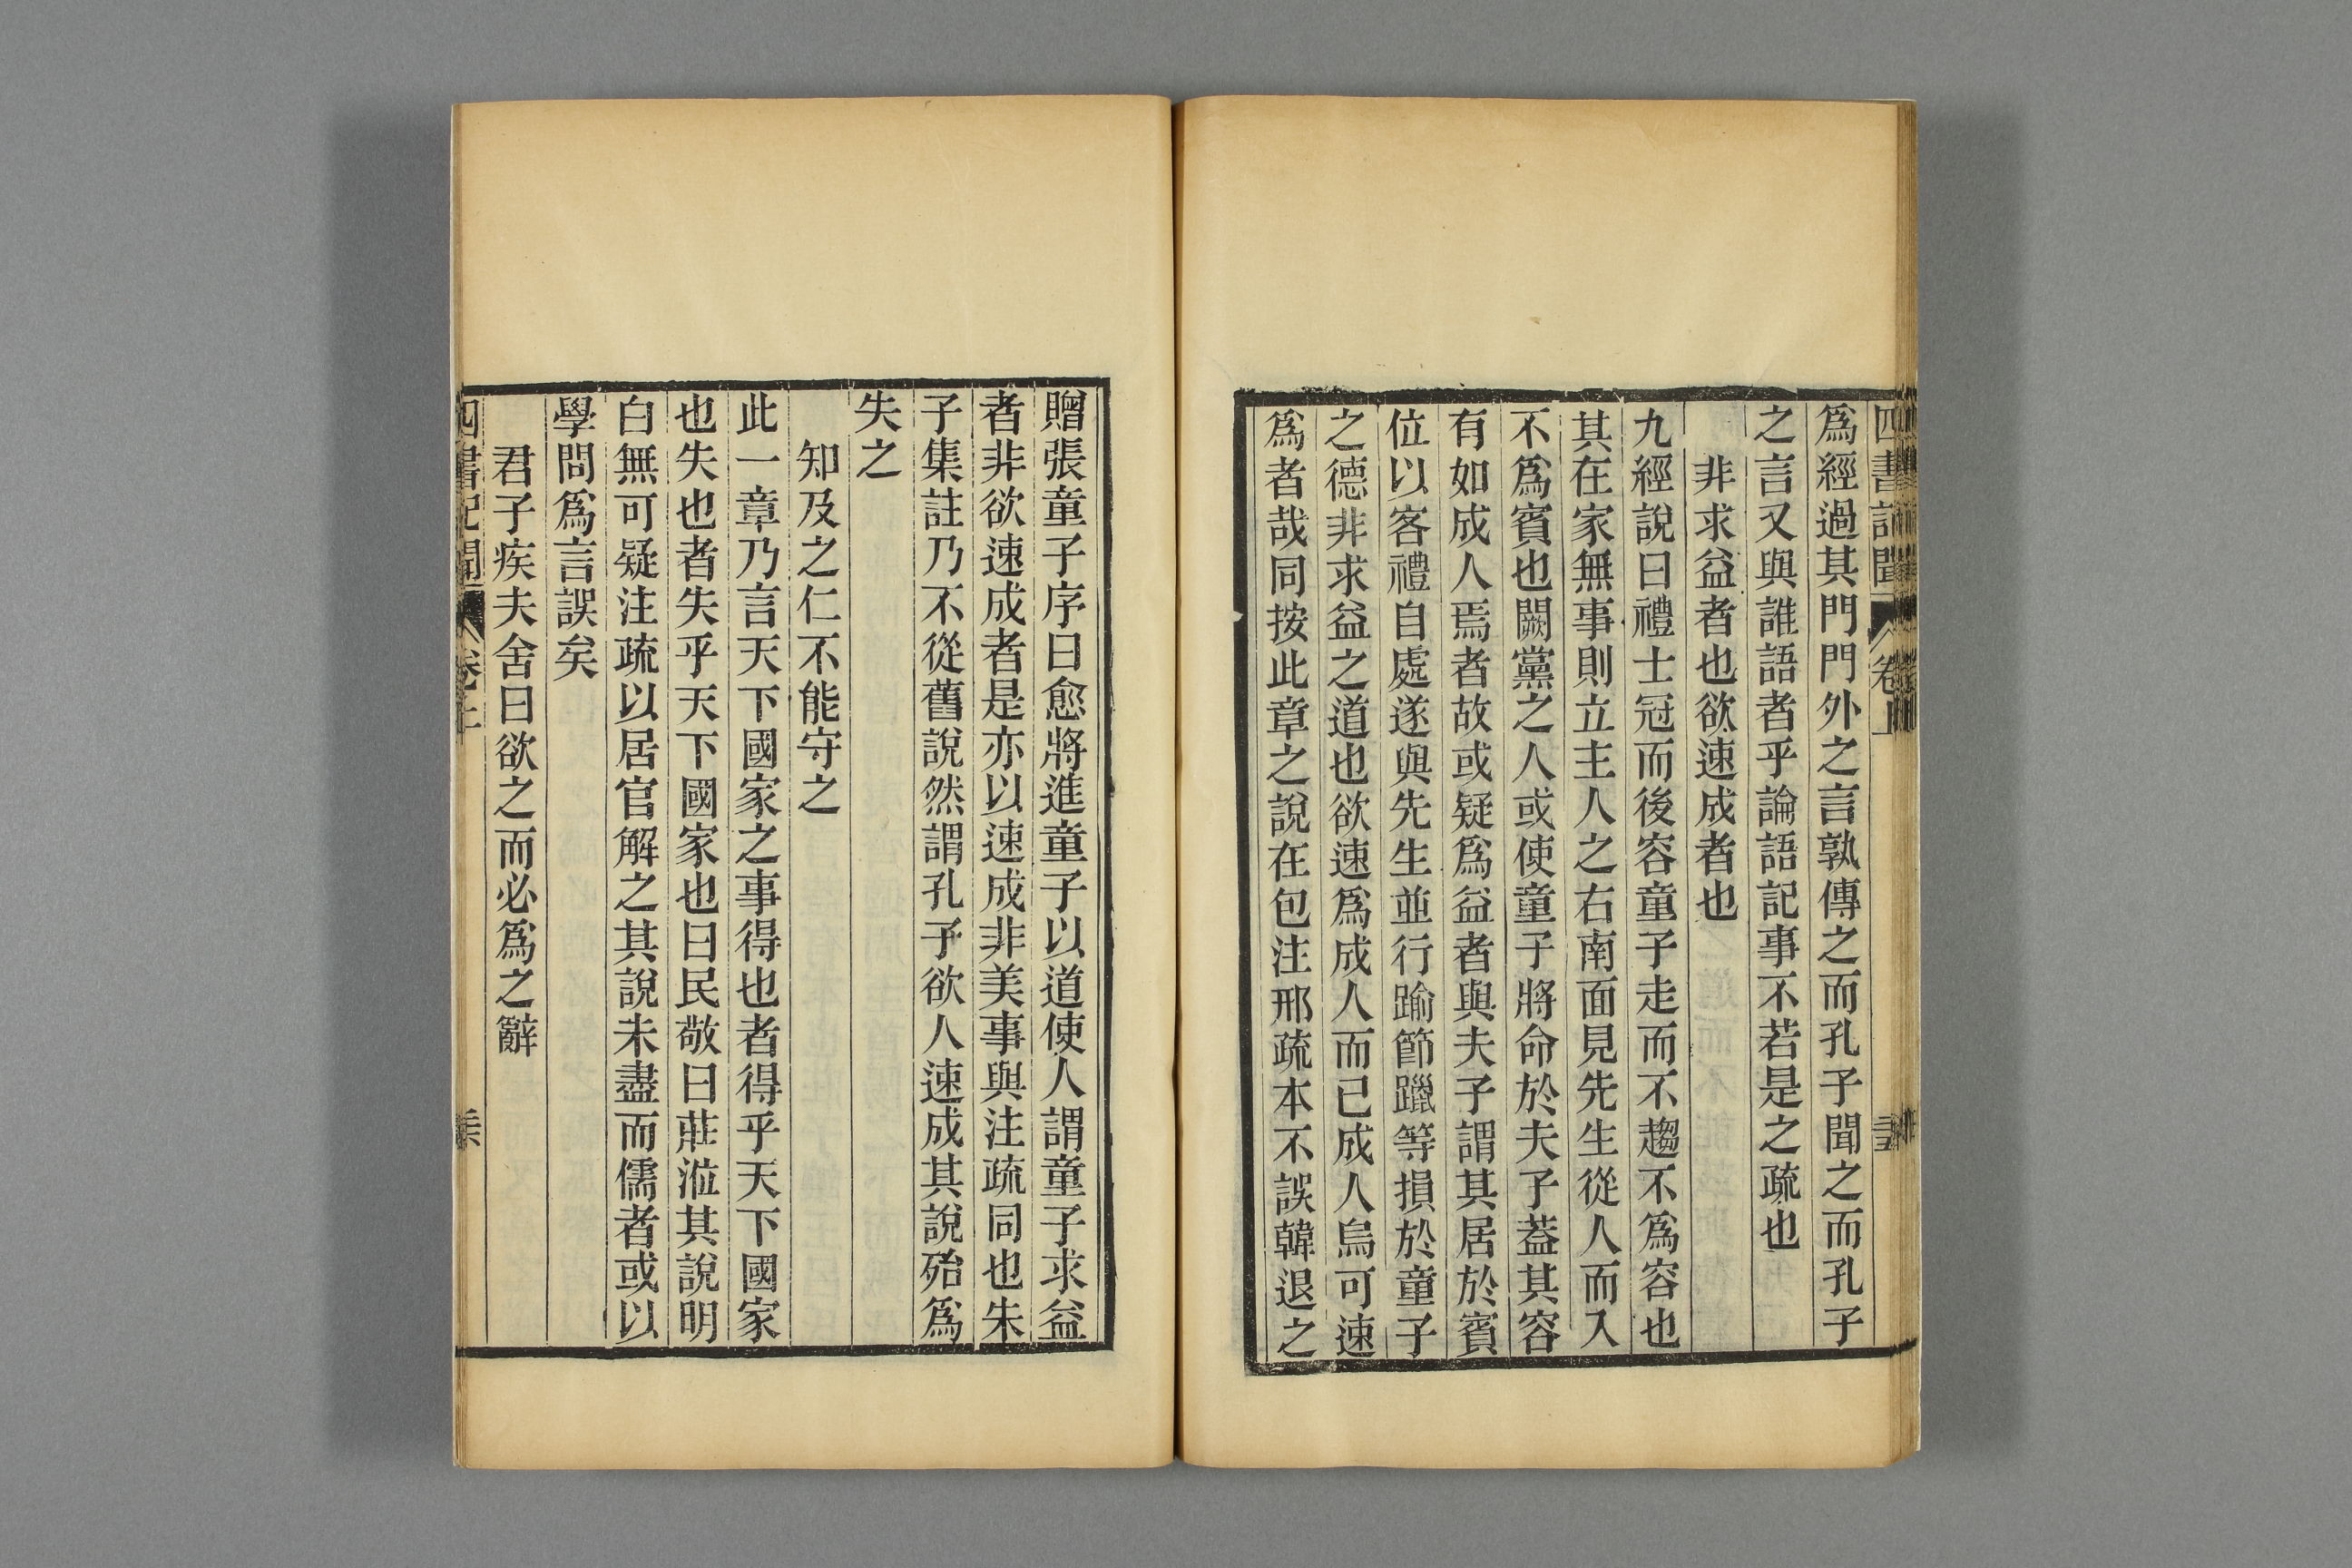 四書記聞 卷上
爲經過其門門外之言孰傳之而孔子聞之而孔子
之言又與誰語者乎論語記事不若是之疏也
非求益者也欲速成者也
九經說曰禮士冠而後容童子走而不趨不爲容也
其在家無事則立主人之右南面見先生從人而入
不爲賓也闕黨之人或使童子將命於夫子蓋其容
有如成人焉者故或疑爲益者與夫子謂其居於賓
位以客禮自處遂與先生並行踰節躐等損於童子
之德非求益之道也欲速爲成人而已成人烏可速
爲者哉同按此章之說在包注邢疏本不誤韓退之
贈張童子序曰愈將進童子以道使人謂童子求益
者非欲速成者是亦以速成非美事與注疏同也朱
子集註乃不從舊說然謂孔子欲人速成其說殆爲
失之
知及之仁不能守之
此一章乃言天下國家之事得也者得乎天下國家
也失也者失乎天下國家也曰民敬曰莊涖其說明
白無可疑注疏以居官解之其說未盡而儒者或以
學問爲言誤矣
君子疾夫舍曰欲之而必爲之辭
四書記聞 卷上